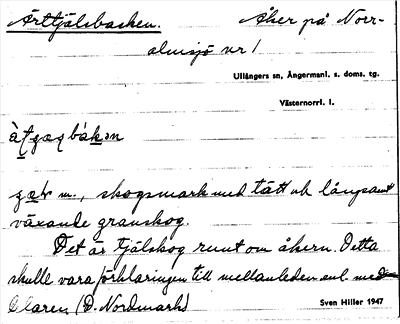 Årttjälsbacken. Åker på Norr-
almsjö nr 1
Ullångers sn, Ångermanl. s. doms. tg.
Västernorrl. l.
m., skogsmark med tätt och långsamt
växande granskog.
Det är tjälskog runt om åkern. Detta
skulle vara förklaringen till mellanleden enl. med-
(D. Nordmark)
Sven Hiller 1947